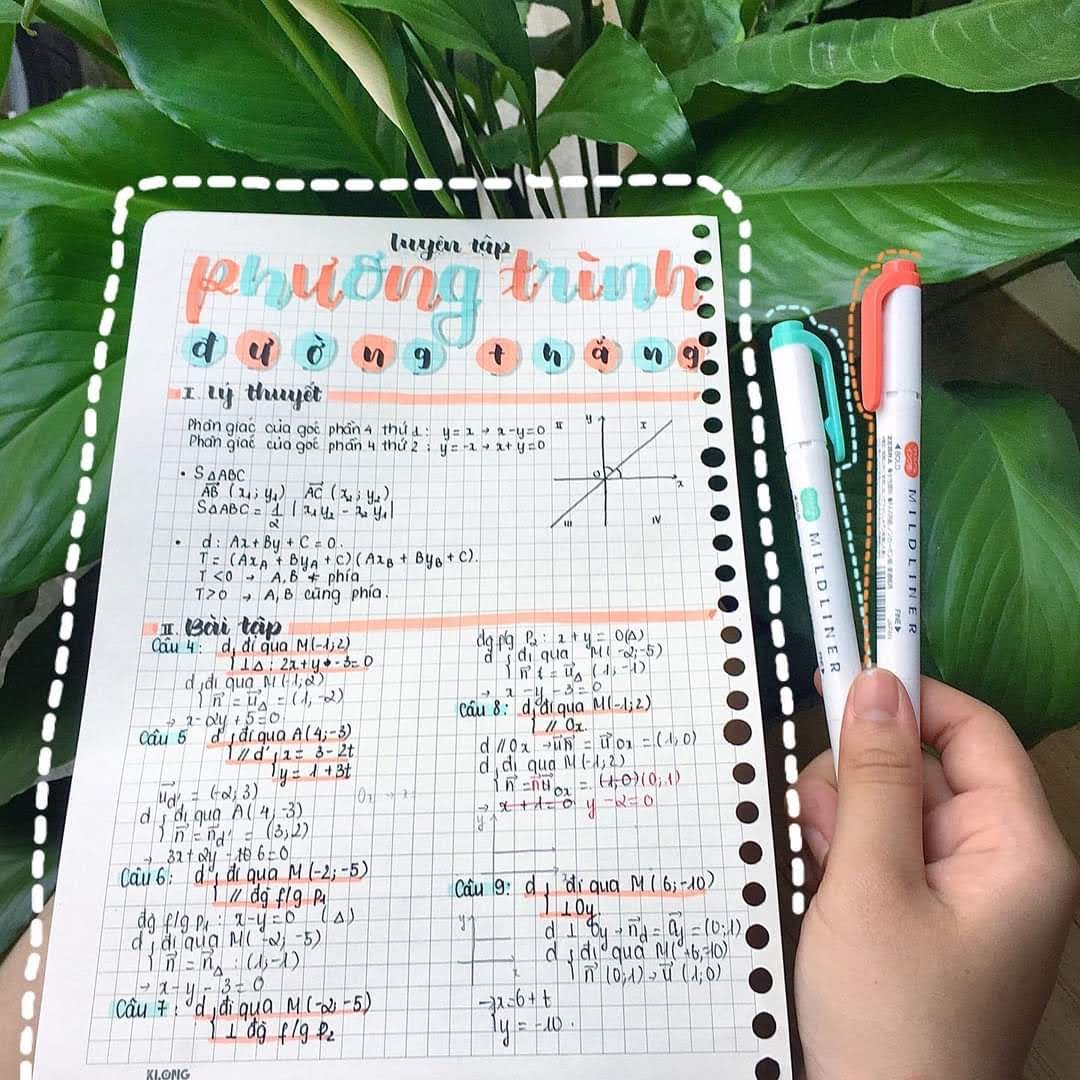 luyện tập
phương trình
đường thẳng
I. Lý thuyết
Phân giác của góc phần 4 thứ 1: y = x → x-y=0
Phân giác của góc phần 4 thứ 2: y=-x → x+y=0
y
II
I
O
x
III
IV
• S△ABC
AB⃗ (x₁; y₁) AC⃗ (x₂; y₂)
S△ABC = 1/2 | x₁y₂ - x₂y₁|
• d: Ax+By+C=0.
T = (Ax_A + By_A + C)(Ax_B + By_B + C).
T<0 → A,B ≠ phía
T>0 → A,B cùng phía.
II. Bài tập
Câu 4: d { đi qua M(-1;2)
⊥ Δ: 2x+y-3=0
d { đi qua M(-1;2)
n⃗ = u⃗_Δ = (1,-2)
→ x-2y+5=0
Câu 5 d { đi qua A(4;-3)
// d' { x = 3-2t
y = 1+3t
u⃗_d' = (-2;3)
d { đi qua A(4;-3)
n⃗ = n⃗_d' = (3;2)
→ 3x+2y-6=0
Câu 6: d { đi qua M(-2;-5)
// đg f/g P₁
đg f/g P₁: x-y=0 (Δ)
d { đi qua M(-2;-5)
n⃗ = n⃗_Δ: (1;-1)
→ x-y-3=0
Câu 7: d { đi qua M(-2;-5)
⊥ đg f/g P₂
đg p/g P₂: x+y=0(Δ)
d { đi qua M(-2;-5)
n⃗ = u⃗_Δ (1;-1)
→ x-y-3=0
Câu 8: d { đi qua M(-1;2)
// Ox
d // Ox → u⃗ = u⃗ Ox = (1;0)
d { đi qua M(-1;2)
n⃗ = n⃗ Ox = (1;0) (0;1)
→ x+1=0 y-2=0
y
Câu 9: d { đi qua M(6;-10)
⊥ Oy
y
x
d ⊥ Oy → n⃗_d = a⃗_j = (0;1)
d { đi qua M(+6;-10)
n⃗ (0;1) → u⃗ (1;0)
→ { x=6+t
y=-10.
KLONG
MILDLINER
ZEBRA
MILDLINER
FINE